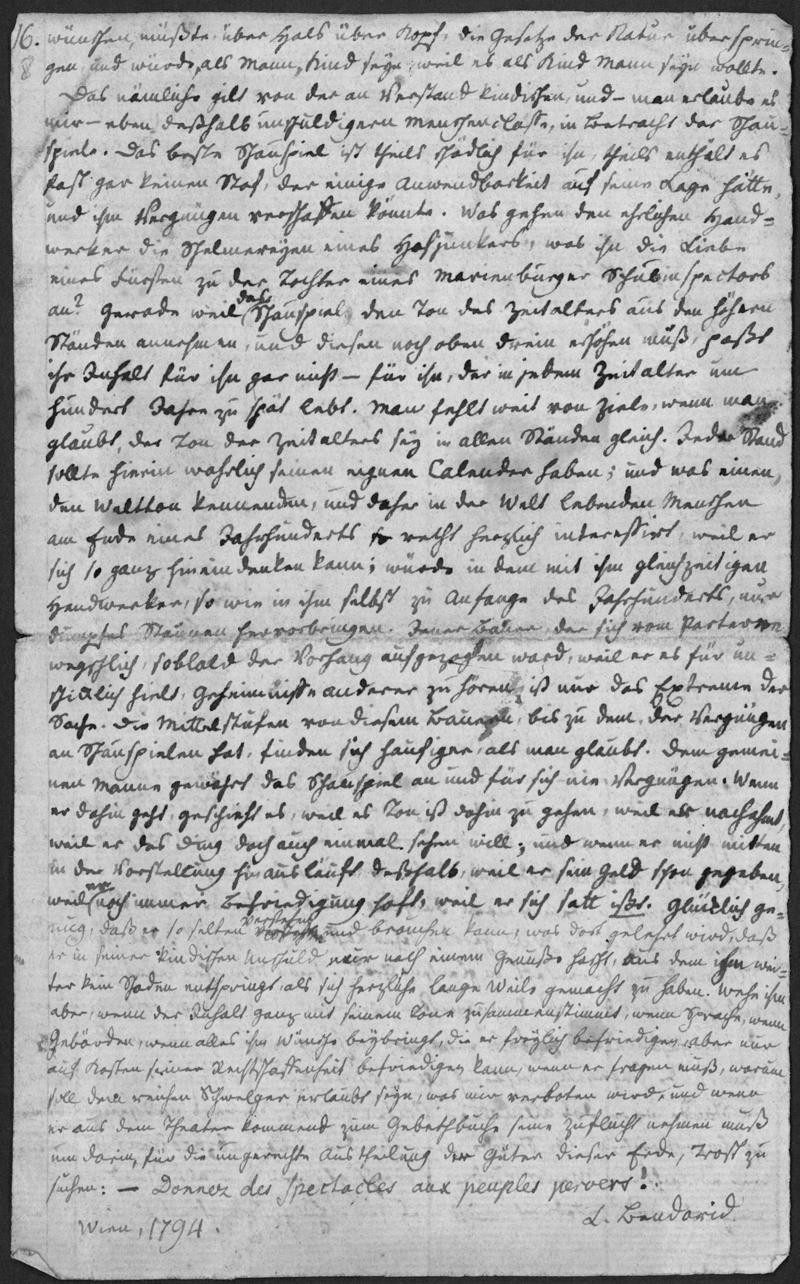 16. wünschen, müßte, über Hals über Kopf, die Gesetze der Natur übersprin-
8 gen, und würde, als Mann, Kind seyn, weil es als Kind Mann seyn wollte.
Das nämliche gilt von der an Verstand kindischen, und – man erlaube es
mir – eben deßhalb unschuldigern Menschenclasse, in Betracht der Schau-
spiele. Das beste Schauspiel ist theils schädlich für ihn, theils enthält es
fast gar keinen Stof, der einige Anwendbarkeit auf seine Lage hätte,
und ihm Vergnügen verschaffen könnte. Was gehen den ehrlichen Hand-
werker die Schelmereyen eines Hofjunkers, was ihn die Liebe
eines Fürsten zu der Tochter eines Marienburger Schulinspectors
an? Gerade weil das Schauspiel den Ton des Zeitalters aus den höhern
Ständen annehmen, und diesen noch oben drein erhöhen muß, paßt
ihr Inhalt für ihn gar nicht – für ihn, der in jedem Zeitalter um
hundert Jahre zu spät lebt. Man fehlt weit von Ziele, wenn man
glaubt, der Ton der Zeitalters sey in allen Ständen gleich. Jeder Stand
sollte hierin wahrlich seinen eignen Calender haben; und was einen,
den Weltton kennenden, und daher in der Welt lebenden Menschen
am Ende eines Jahrhunderts recht herzlich interessirt, weil er
sich so ganz hinein denken kann; würde in dem mit ihm gleichzeitigen
Handwerker, so wie in ihm selbst zu Anfange des Jahrhunderts, nur
dumpfes Staunen hervorbringen. Jener Bauer, der sich vom Parterre
wegschlich, soblald der Vorhang aufgezogen ward, weil er es für un-
schicklich hielt, Geheimnisse anderer zu hören, ist nur das Extreme der
Sache. Die Mittelstufen von diesem Bauern, bis zu dem, der Vergnügen
an Schauspielen hat, finden sich häufiger, als man glaubt. Dem gemei-
nen Manne gewährt das Schauspiel an und für sich nie Vergnügen. Wenn
er dahin geht, geschieht es, weil es Ton ist dahin zu gehen, weil er nachahmt,
weil er das Ding doch auch einmal sehen will; und wenn er nicht mitten
in der Vorstellung hinausläuft deßhalb, weil er sein Geld schon gegeben,
weil er noch immer Befriedigung hoft, weil er sich satt ißt. Glücklich ge-
nug, daß er so selten verstehen und brauchen kann, was dort gelehrt wird, daß
er in seiner kindischen Unschuld nur nach einem Genusse hascht, aus dem ihm wei-
ter kein Schaden entspringt, als sich herzliche lange Weile gemacht zu haben. Wehe ihm
aber, wenn der Inhalt ganz mit seinem Tone zusammenstimmt, wenn Sprache, wenn
Gebärden, wenn alles ihm Wünsche beybringt, die er freylich befriedigen, aber nur
auf Kosten seiner Rechtschaffenheit befriedigen kann, wenn er fragen muß, warum
soll dem reichen Schwelger erlaubt seyn, was mir verboten wird, und wenn
er aus dem Theater kommend zum Gebethbuche seine Zuflucht nehmen muß
um darin, für die ungerechte Austheilung der Güter dieser Erde, Trost zu
suchen: – Donnez des spectacles aux peuples pervers!
Wien, 1794. L. Bendavid.